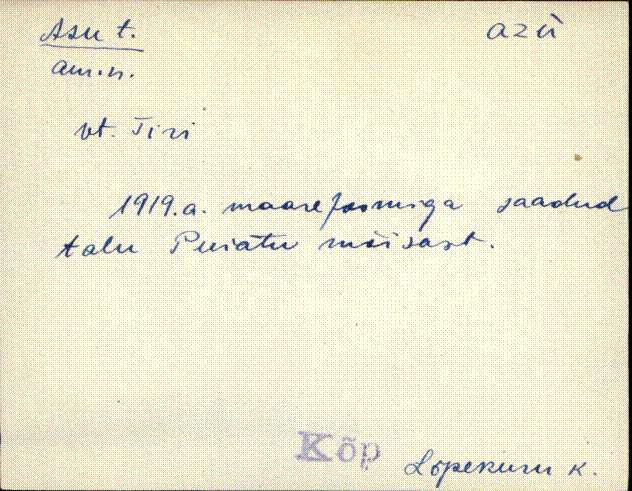 Asu t. azù
am.n.
vt. Tiri
1919.a. maareformiga saadud
talu Puiatu mõisast.
Kõp
Lõpekunu k.